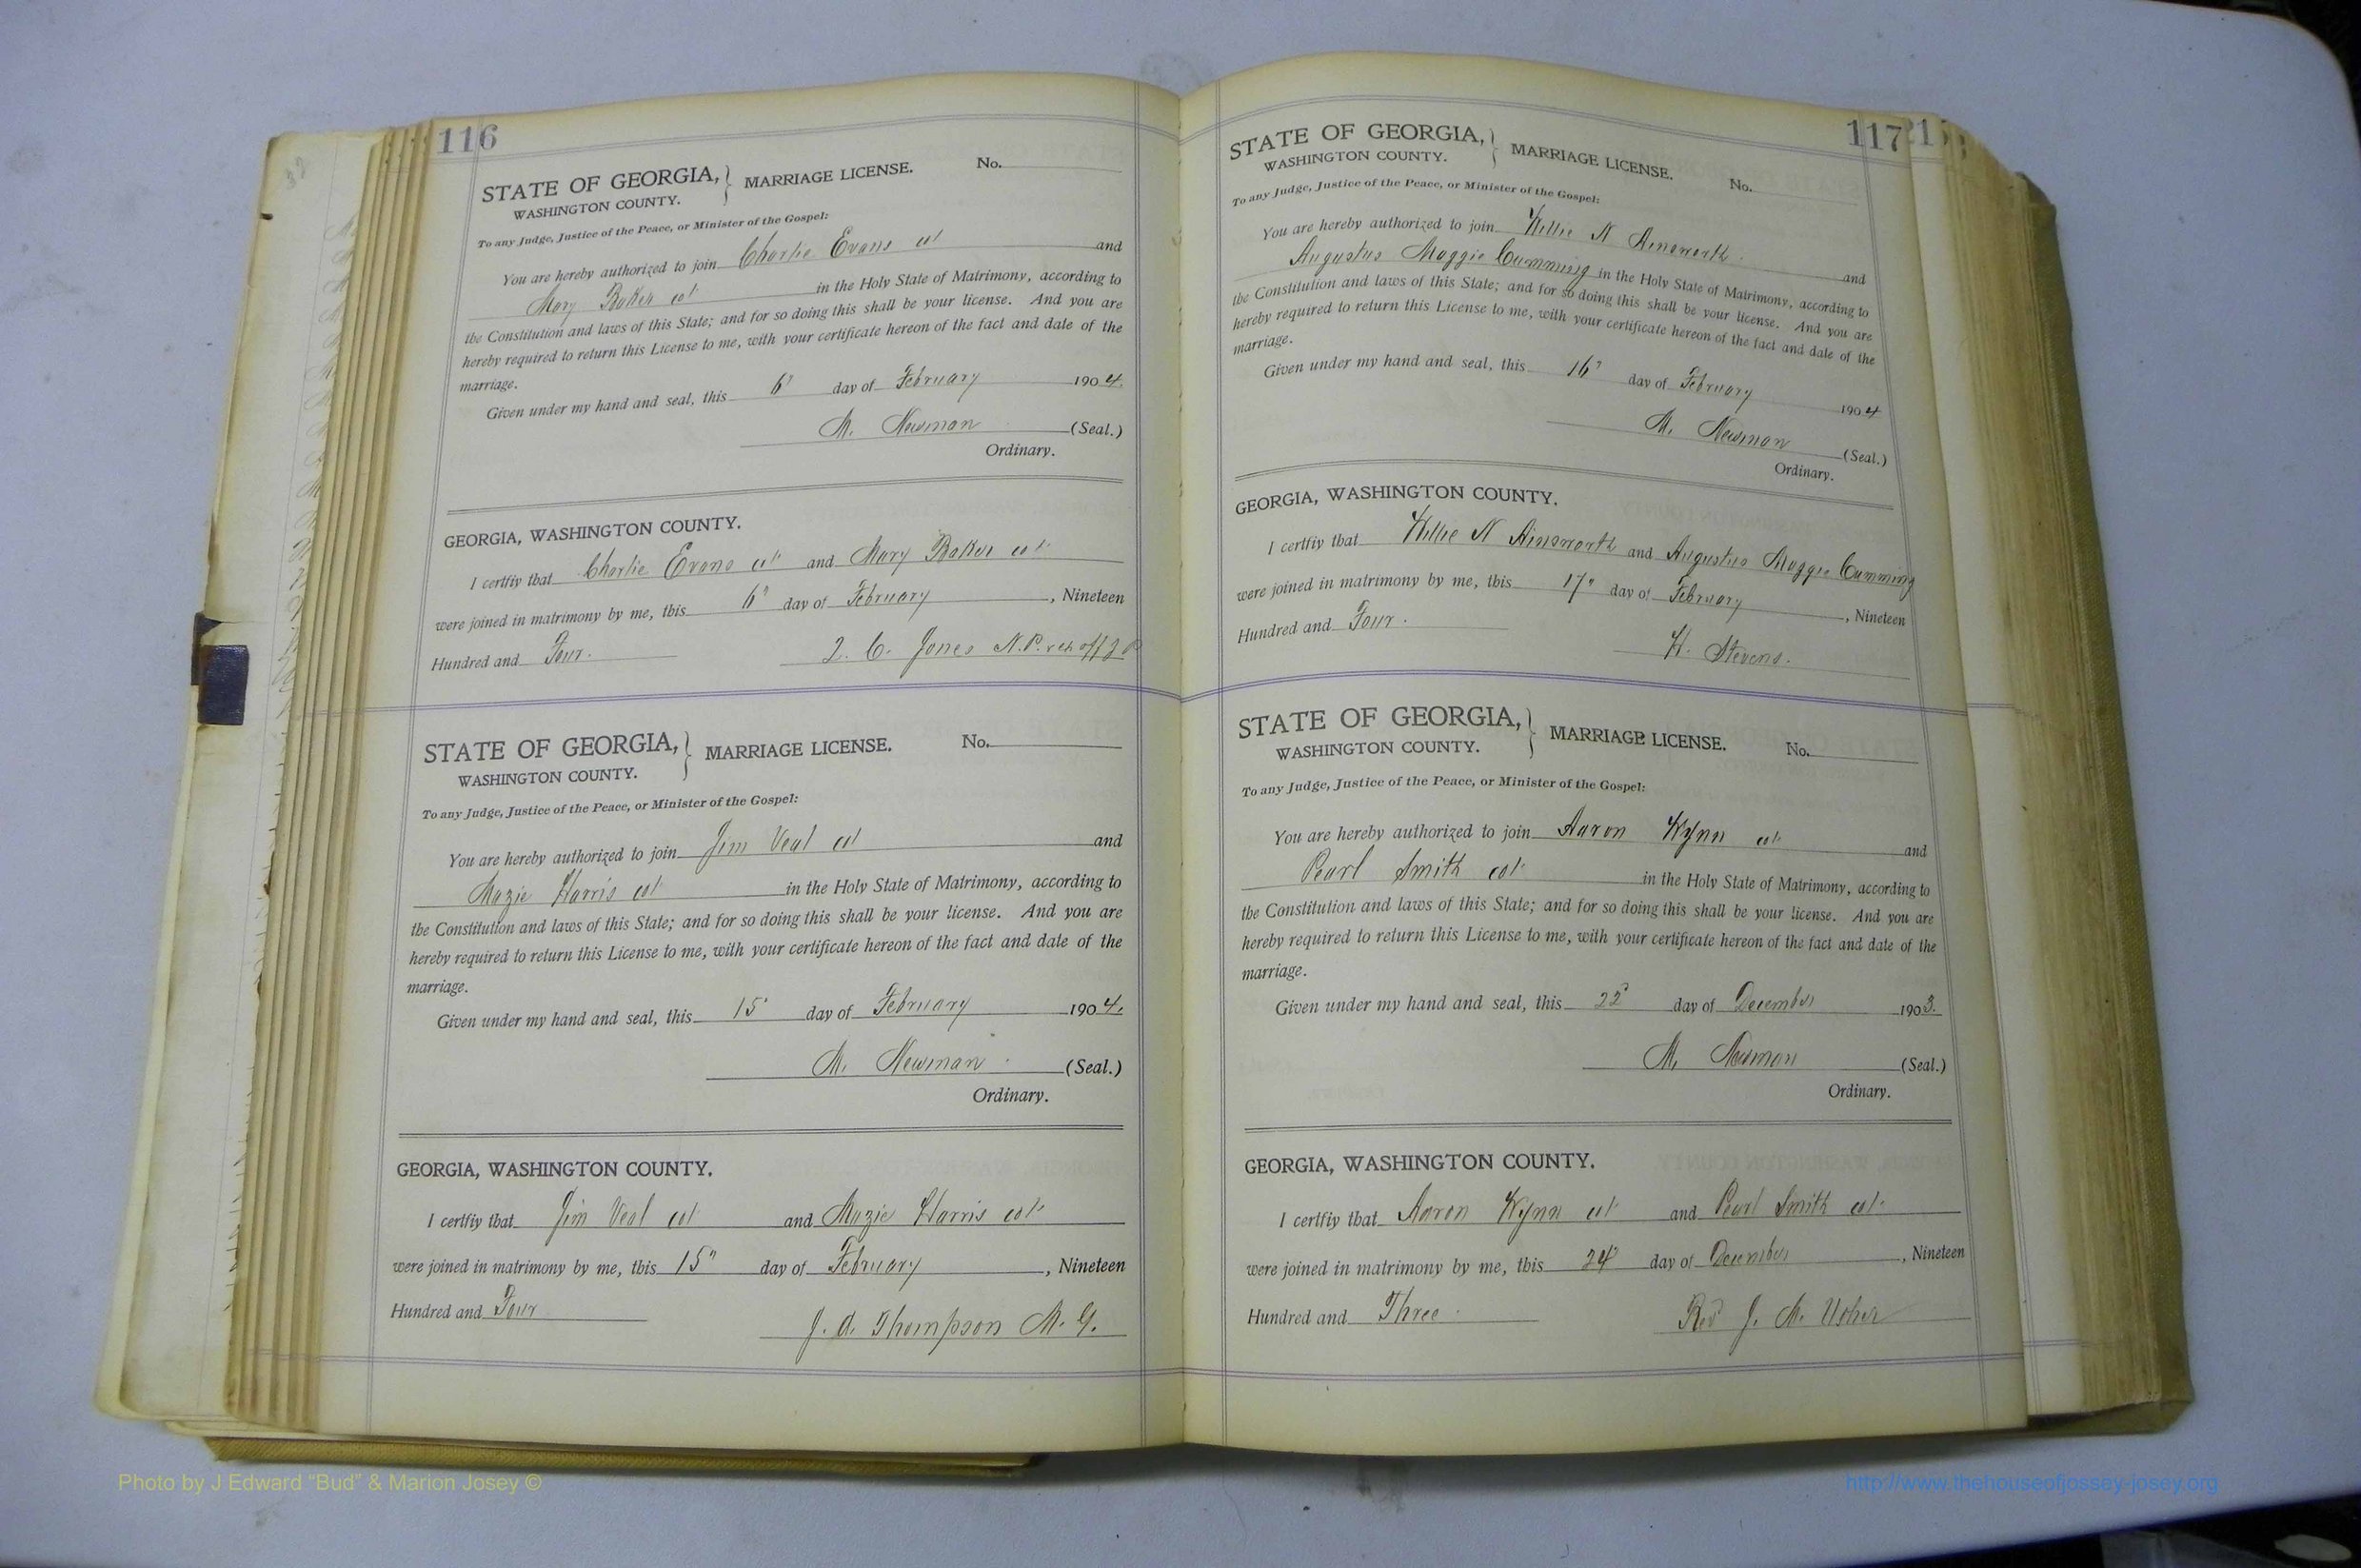 116
STATE OF GEORGIA, } MARRIAGE LICENSE. No.
WASHINGTON COUNTY.
To any Judge, Justice of the Peace, or Minister of the Gospel:
You are hereby authorized to join Charlie Evans col and
Mary Baker col in the Holy State of Matrimony, according to
the Constitution and laws of this State; and for so doing this shall be your license. And you are
hereby required to return this License to me, with your certificate hereon of the fact and date of the
marriage.
Given under my hand and seal, this 6" day of February 1904.
M. Newman (Seal.)
Ordinary.
GEORGIA, WASHINGTON COUNTY.
I certfiy that Charlie Evans col and Mary Baker col
were joined in matrimony by me, this 6" day of February, Nineteen
Hundred and Four. C. Jones N.P.
STATE OF GEORGIA, } MARRIAGE LICENSE. No.
WASHINGTON COUNTY.
To any Judge, Justice of the Peace, or Minister of the Gospel:
You are hereby authorized to join Jim Veal col and
Mazie Harris col in the Holy State of Matrimony, according to
the Constitution and laws of this State; and for so doing this shall be your license. And you are
hereby required to return this License to me, with your certificate hereon of the fact and date of the
marriage.
Given under my hand and seal, this 15" day of February 1904.
M. Newman (Seal.)
Ordinary.
GEORGIA, WASHINGTON COUNTY.
I certfiy that Jim Veal col and Mazie Harris col
were joined in matrimony by me, this 15" day of February, Nineteen
Hundred and Four J. A. Thompson M. G.
117
STATE OF GEORGIA, } MARRIAGE LICENSE. No.
WASHINGTON COUNTY.
To any Judge, Justice of the Peace, or Minister of the Gospel:
You are hereby authorized to join Willie N Ainsworth and
Augustus Maggie Cumming in the Holy State of Matrimony, according to
the Constitution and laws of this State; and for so doing this shall be your license. And you are
hereby required to return this License to me, with your certificate hereon of the fact and date of the
marriage.
Given under my hand and seal, this 16" day of February 1904
M. Newman (Seal.)
Ordinary.
GEORGIA, WASHINGTON COUNTY.
I certfiy that Willie N Ainsworth and Augustus Maggie Cumming
were joined in matrimony by me, this 17" day of February, Nineteen
Hundred and Four. H. Stevens.
STATE OF GEORGIA, } MARRIAGE LICENSE. No.
WASHINGTON COUNTY.
To any Judge, Justice of the Peace, or Minister of the Gospel:
You are hereby authorized to join Aaron Wynn col and
Pearl Smith col in the Holy State of Matrimony, according to
the Constitution and laws of this State; and for so doing this shall be your license. And you are
hereby required to return this License to me, with your certificate hereon of the fact and date of the
marriage.
Given under my hand and seal, this 22" day of December 1903.
M. Newman (Seal.)
Ordinary.
GEORGIA, WASHINGTON COUNTY.
I certfiy that Aaron Wynn col and Pearl Smith col
were joined in matrimony by me, this 24" day of December, Nineteen
Hundred and Three Rev J. M. Usher
Photo by J Edward “Bud” & Marion Josey ©
http://www.thehouseofjossey-josey.org